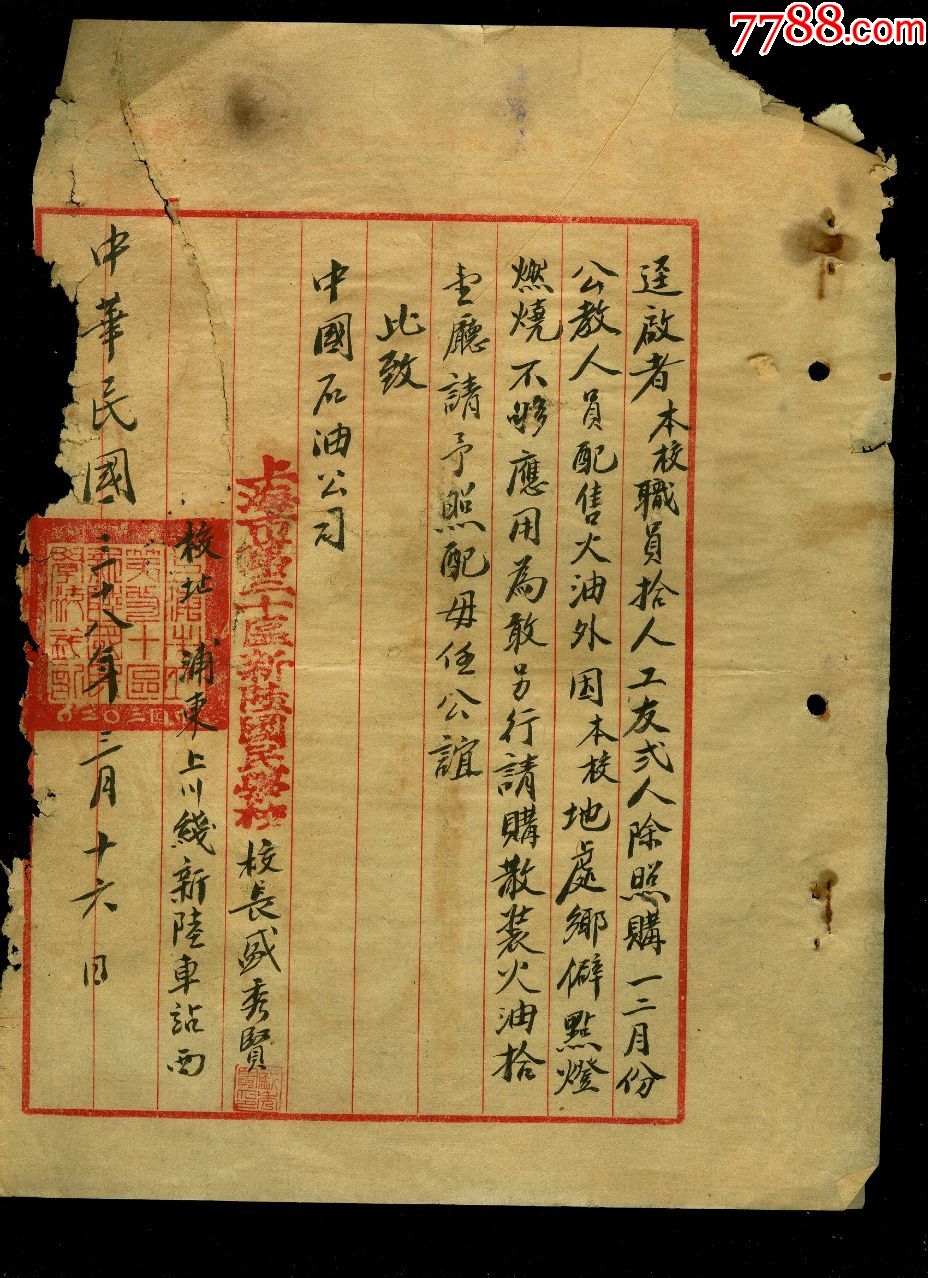 7788.com
逕啟者本校職員拾人工友弍人除照購一二月份
公教人員配售火油外因本校地處鄉僻點燈
燃燒不夠應用為敢另行請購散裝火油拾
聽請予照配毋任公誼
此致
中國石油公司
上海市第三十區新陸國民學校校長盛秀賢
校址 浦東上川綫新陸車站西
中華民國三十八年三月十六日